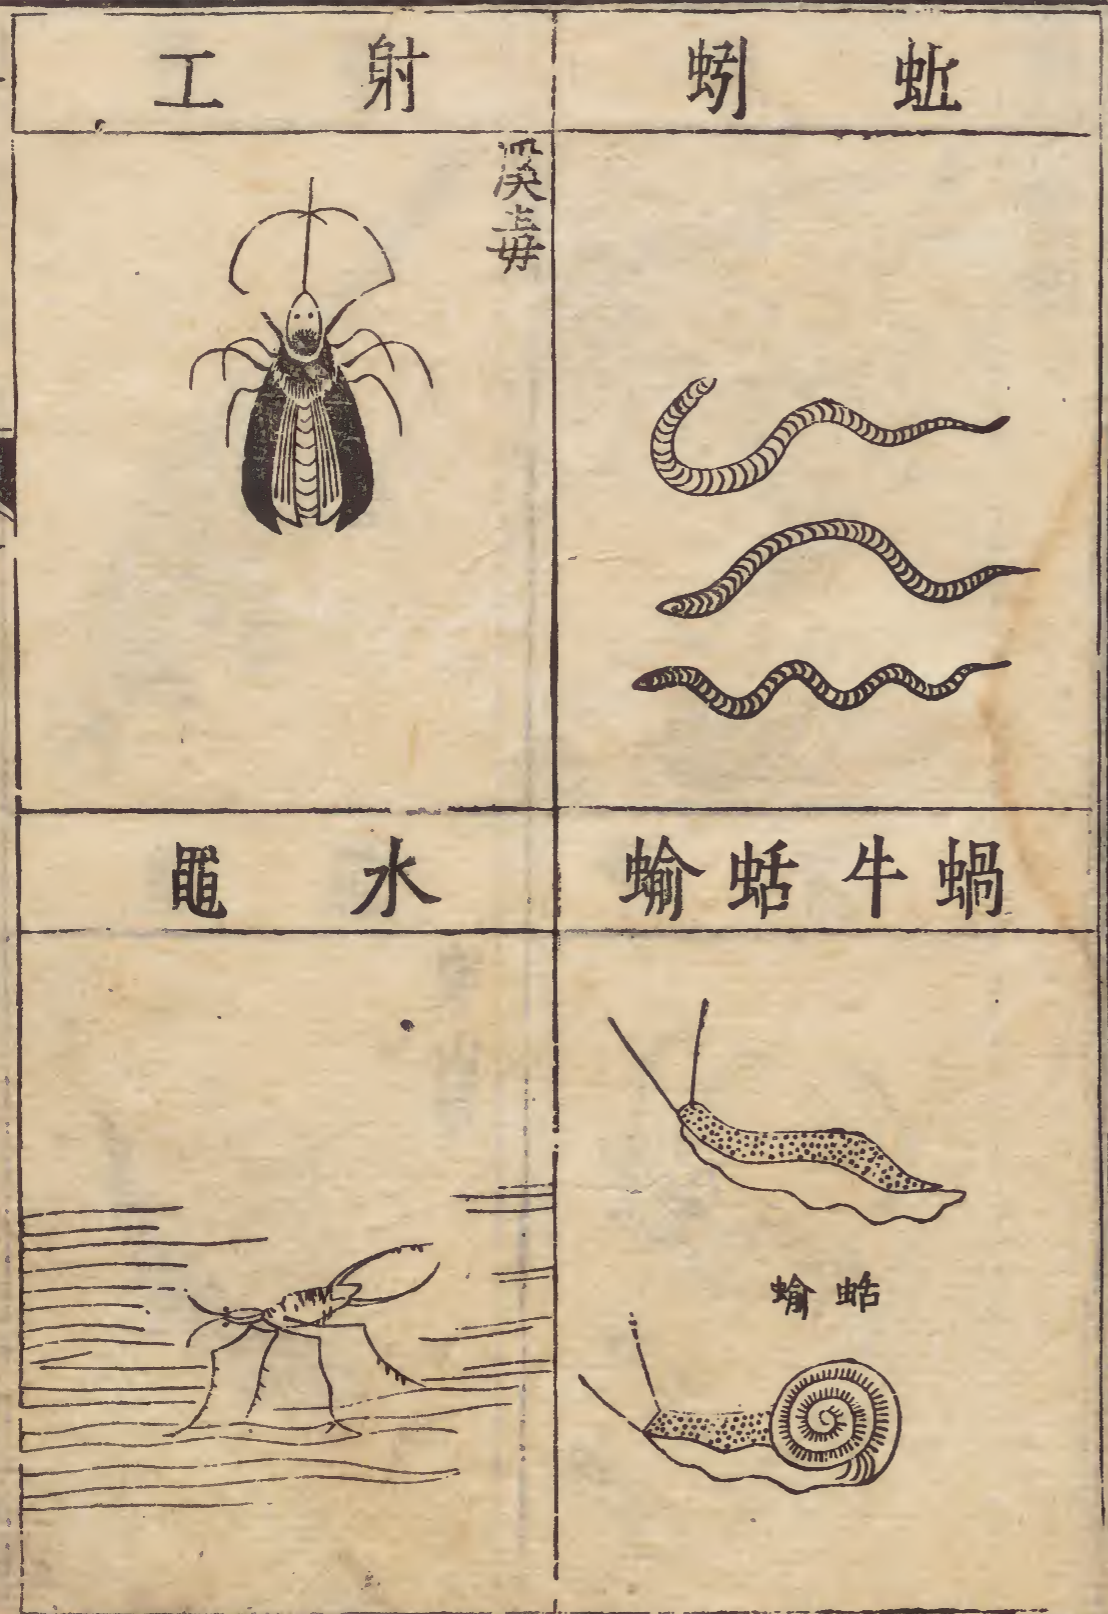 蚯蚓
射工
溪毒
蝸牛蛞蝓
蛞蝓
水黽